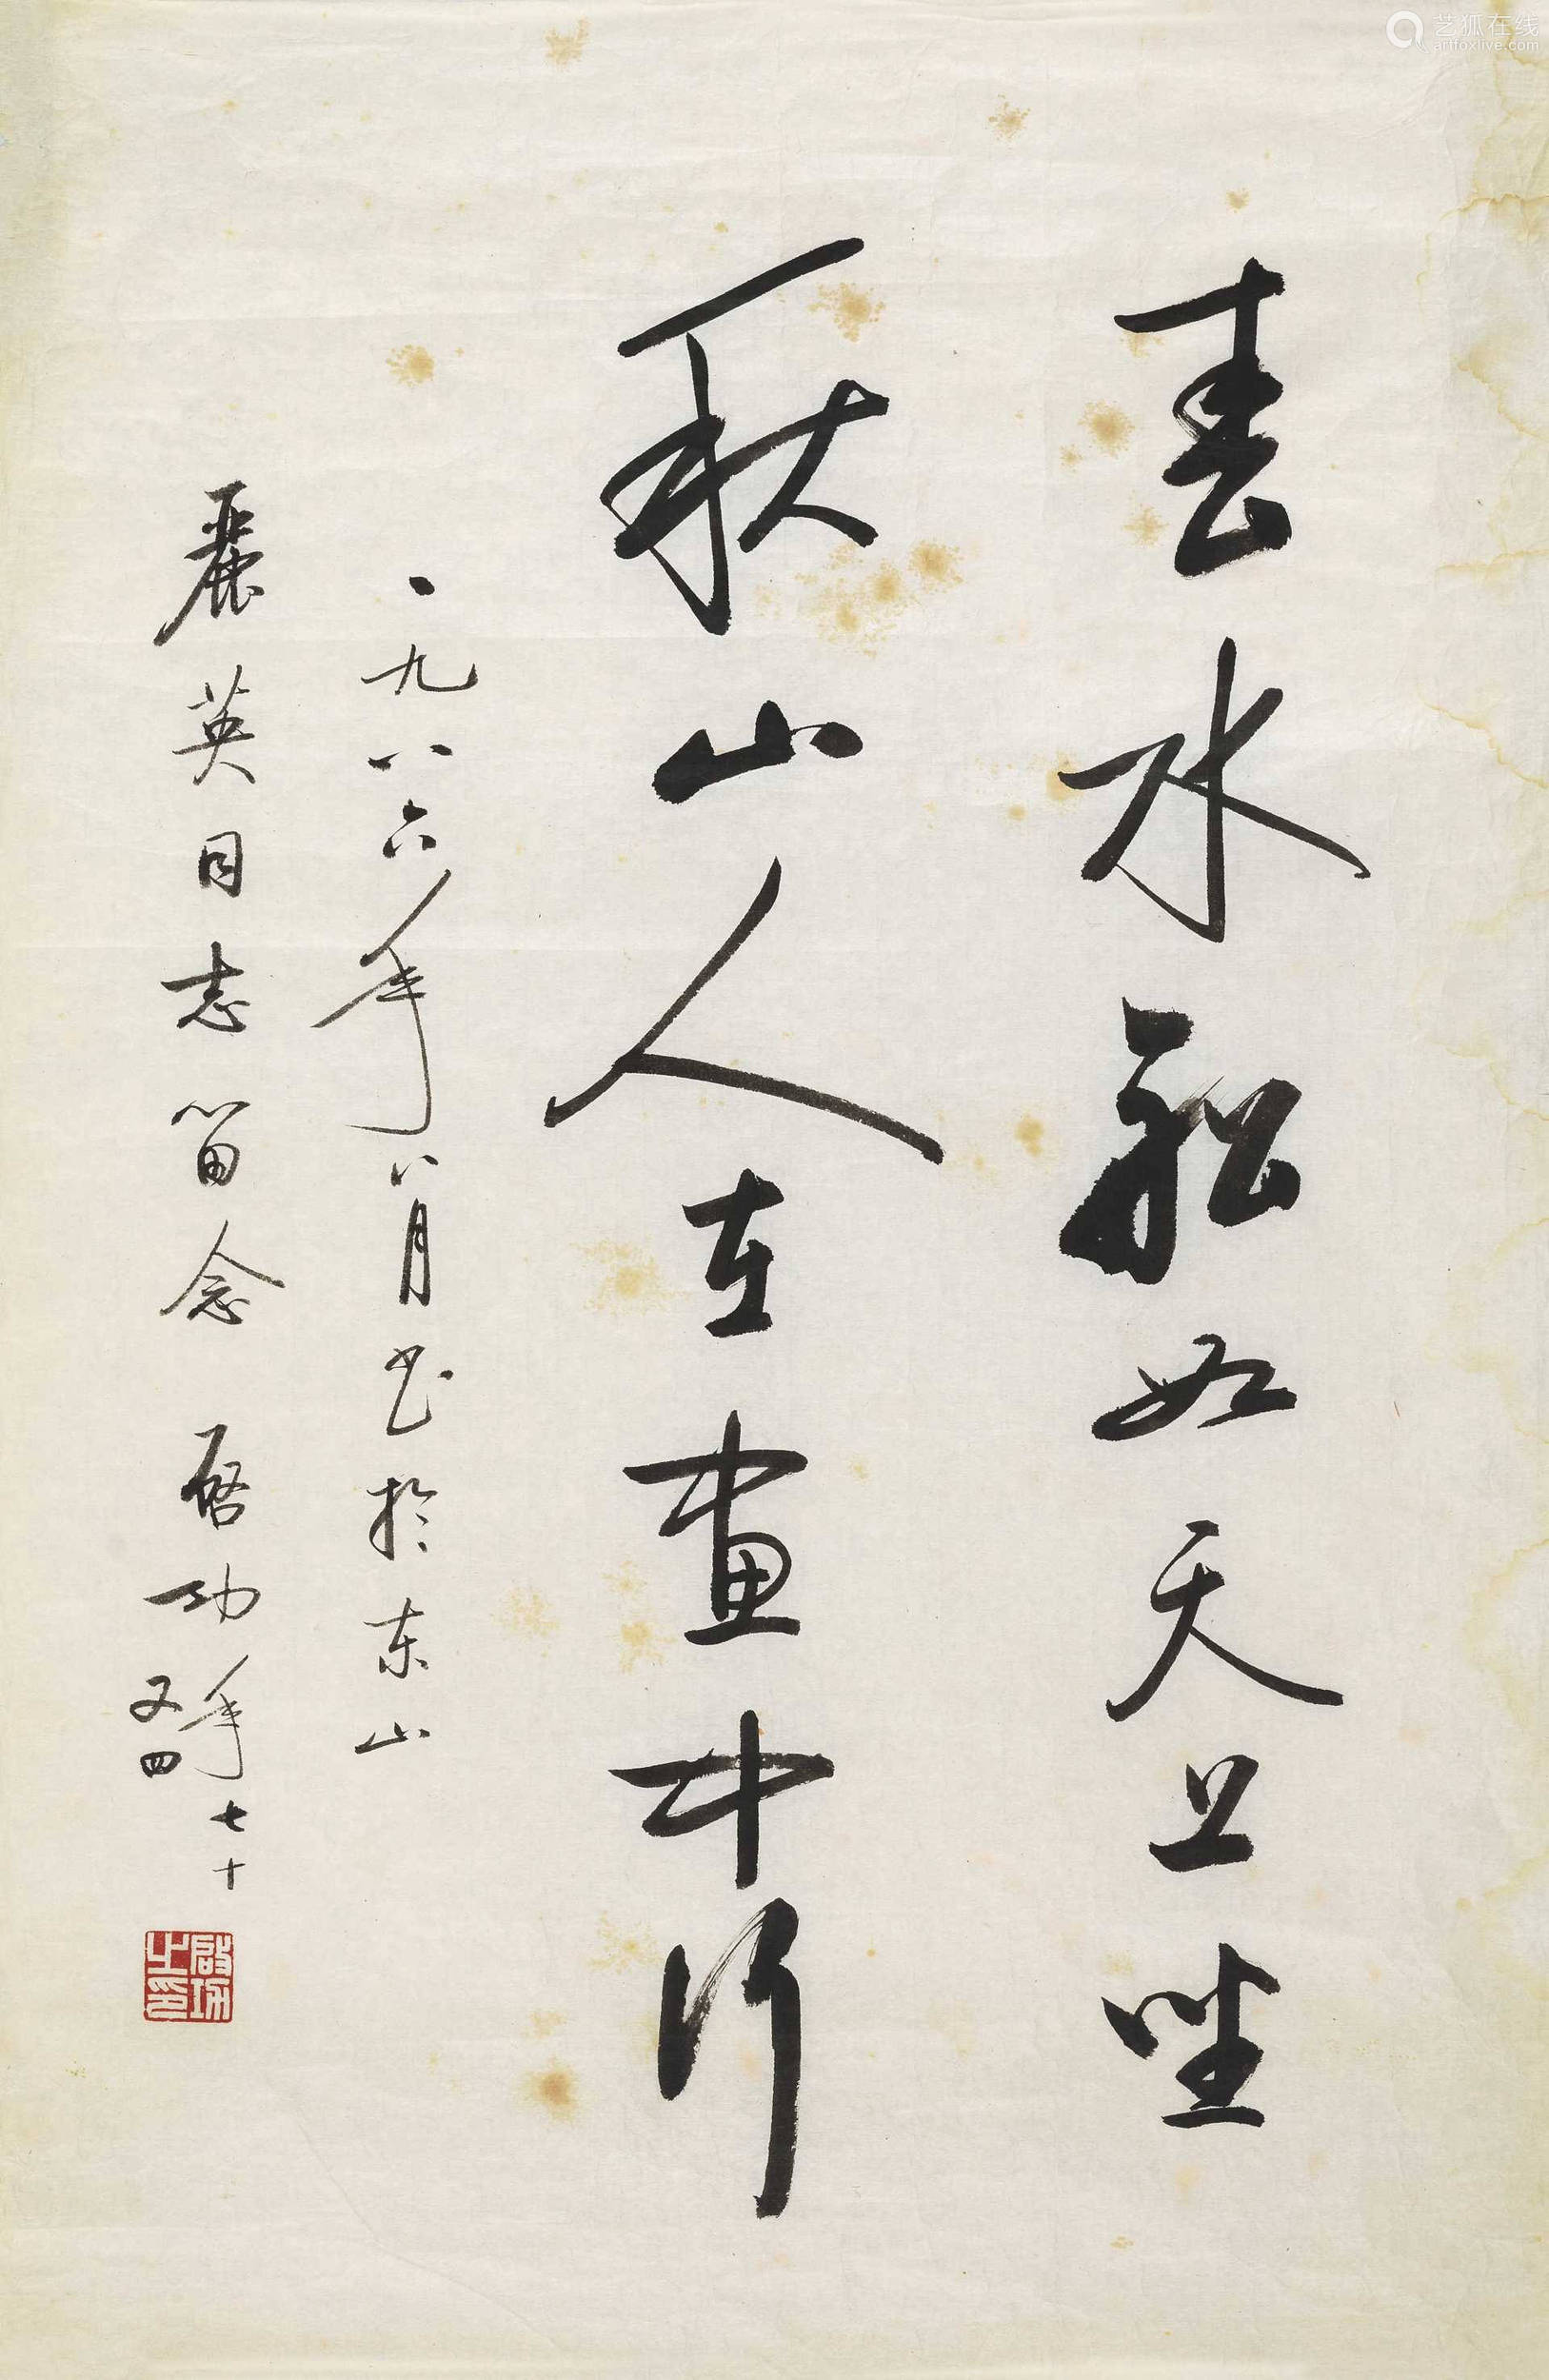 春水船如天上坐
秋山人在畫中行
一九八六年八月书於东山
麗英同志留念 啓功年七十
又四
啟功
之印
艺狐在线
artfoxlive.com